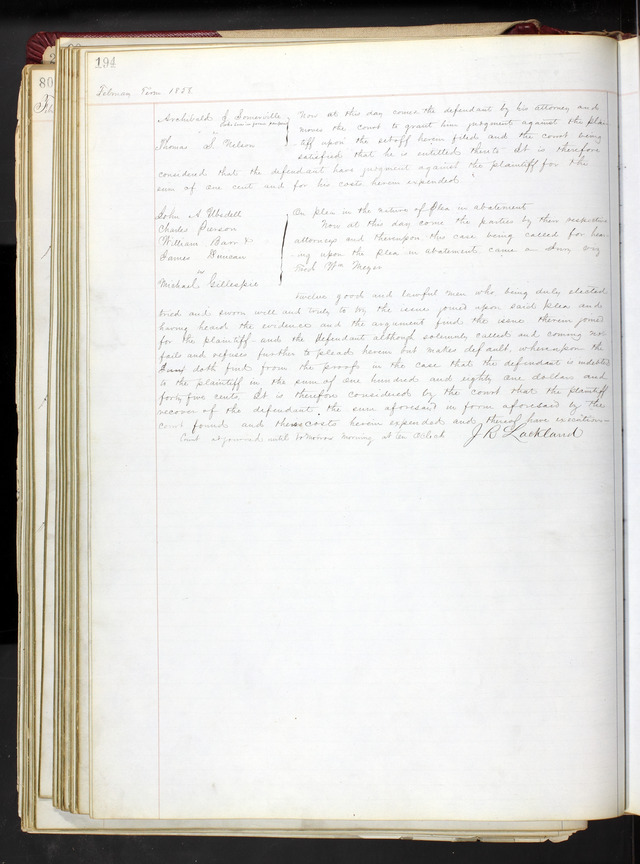 194
February Term 1858
Archibald J. Somerville
Thomas S. Nelson
Now at this day comes the defendant by his attorney and
moves the court to grant him judgment against the plain
tiff upon the set off herein filed and the court being
satisfied that he is entitled thereto It is therefore
considered that the defendant have judgment against the plaintiff for the
sum of one cent and for his costs herein expended
John A. Ubsdell
Charles Pierson
William Barr &
James Duncan
vs
Michael Gillespie
On plea in the nature of Plea in abatement
Now at this day come the parties by their respective
attorneys and thereupon this case being called for hear
ing upon the plea in abatement came a Jury viz
Fred. Wm Meyer
twelve good and lawful men who being duly elected
tried and sworn well and truly to try the issue joined upon said plea and
having heard the evidence and the argument find the issue therein joined
for the plaintiff and the defendant although solemnly called and coming not
fails and refuses further to plead herein but makes default, whereupon the
Jury doth find from the proofs in the case that the defendant is indebted
to the plaintiff in the sum of one hundred and eighty one dollars and
forty five cents, It is therefore considered by the court that the plaintiff
recover of the defendant the sum aforesaid in form aforesaid by the
court found and their costs herein expended and thereof have execution
Court adjourned until tomorrow morning at ten Oclock J R Lackland
80